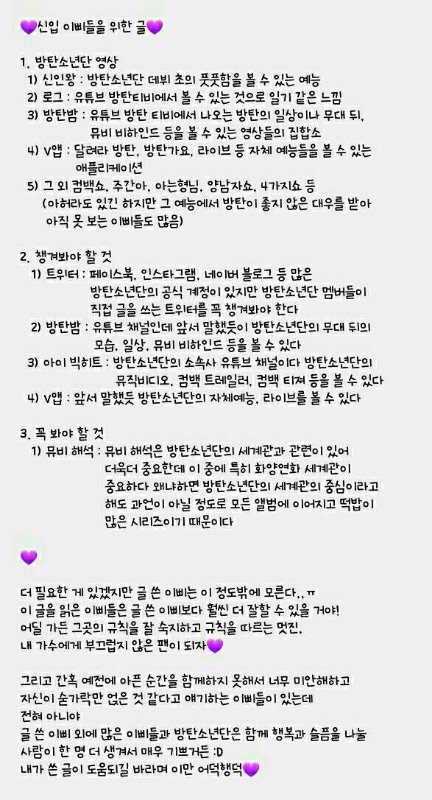 💜신입 이삐들을 위한 글💜
1. 방탄소년단 영상
1) 신인왕 : 방탄소년단 데뷔 초의 풋풋함을 볼 수 있는 예능
2) 로그 : 유튜브 방탄티비에서 볼 수 있는 것으로 일기 같은 느낌
3) 방탄밤 : 유튜브 방탄 티비에서 나오는 방탄의 일상이나 무대 뒤,
뮤비 비하인드 등을 볼 수 있는 영상들의 집합소
4) V앱 : 달려라 방탄, 방탄가요, 라이브 등 자체 예능들을 볼 수 있는
애플리케이션
5) 그 외 컴백쇼, 주간아, 아는형님, 양남자쇼, 4가지쇼 등
(아허라도 있긴 하지만 그 예능에서 방탄이 좋지 않은 대우를 받아
아직 못 보는 이삐들도 많음)
2. 챙겨봐야 할 것
1) 트위터 : 페이스북, 인스타그램, 네이버 블로그 등 많은
방탄소년단의 공식 계정이 있지만 방탄소년단 멤버들이
직접 글을 쓰는 트위터를 꼭 챙겨봐야 한다
2) 방탄밤 : 유튜브 채널인데 앞서 말했듯이 방탄소년단의 무대 뒤의
모습, 일상, 뮤비 비하인드 등을 볼 수 있다
3) 아이 빅히트 : 방탄소년단의 소속사 유튜브 채널이다 방탄소년단의
뮤직비디오, 컴백 트레일러, 컴백 티져 등을 볼 수 있다
4) V앱 : 앞서 말했듯 방탄소년단의 자체예능, 라이브를 볼 수 있다
3. 꼭 봐야 할 것
1) 뮤비 해석 : 뮤비 해석은 방탄소년단의 세계관과 관련이 있어
더욱더 중요한데 이 중에 특히 화양연화 세계관이
중요하다 왜냐하면 방탄소년단의 세계관의 중심이라고
해도 과언이 아닐 정도로 모든 앨범에 이어지고 떡밥이
많은 시리즈이기 때문이다
💜
더 필요한 게 있겠지만 글 쓴 이삐는 이 정도밖에 모른다,,ㅠ
이 글을 읽은 이삐들은 글 쓴 이삐보다 훨씬 더 잘할 수 있을 거야!
어딜 가든 그곳의 규칙을 잘 숙지하고 규칙을 따르는 멋진,
내 가수에게 부끄럽지 않은 팬이 되자💜
그리고 간혹 예전에 아픈 순간을 함께하지 못해서 너무 미안해하고
자신이 숟가락만 얹은 것 같다고 얘기하는 이삐들이 있는데
전혀 아니야
글 쓴 이삐 외에 많은 이삐들과 방탄소년단은 함께 행복과 슬픔을 나눌
사람이 한 명 더 생겨서 매우 기쁘거든 :D
내가 쓴 글이 도움되길 바라며 이만 어덕행덕💜